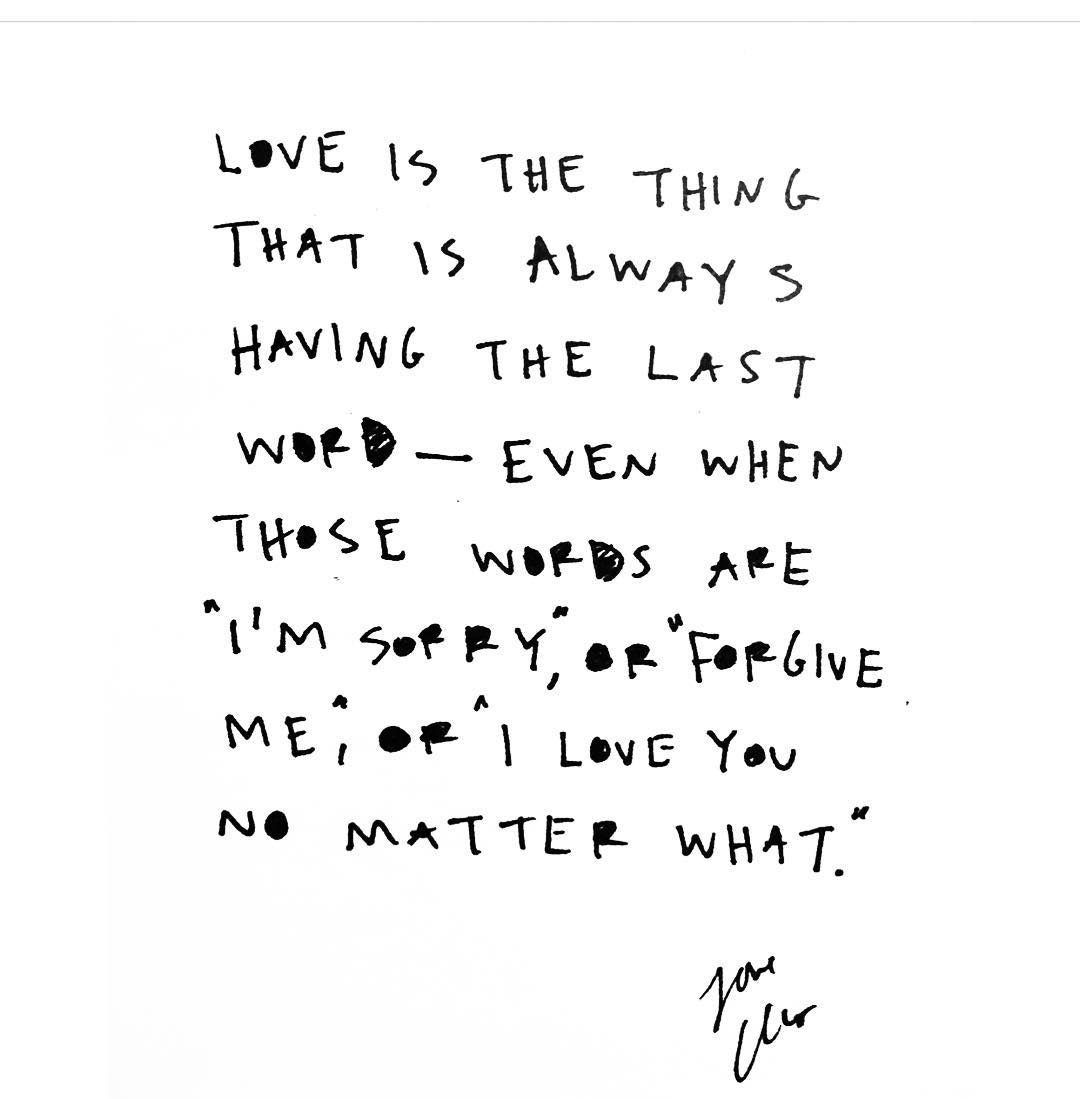 LOVE IS THE THING
THAT IS ALWAYS
HAVING THE LAST
WORD — EVEN WHEN
THOSE WORDS ARE
"I'M SORRY," OR "FORGIVE
ME", OR "I LOVE YOU
NO MATTER WHAT."
love